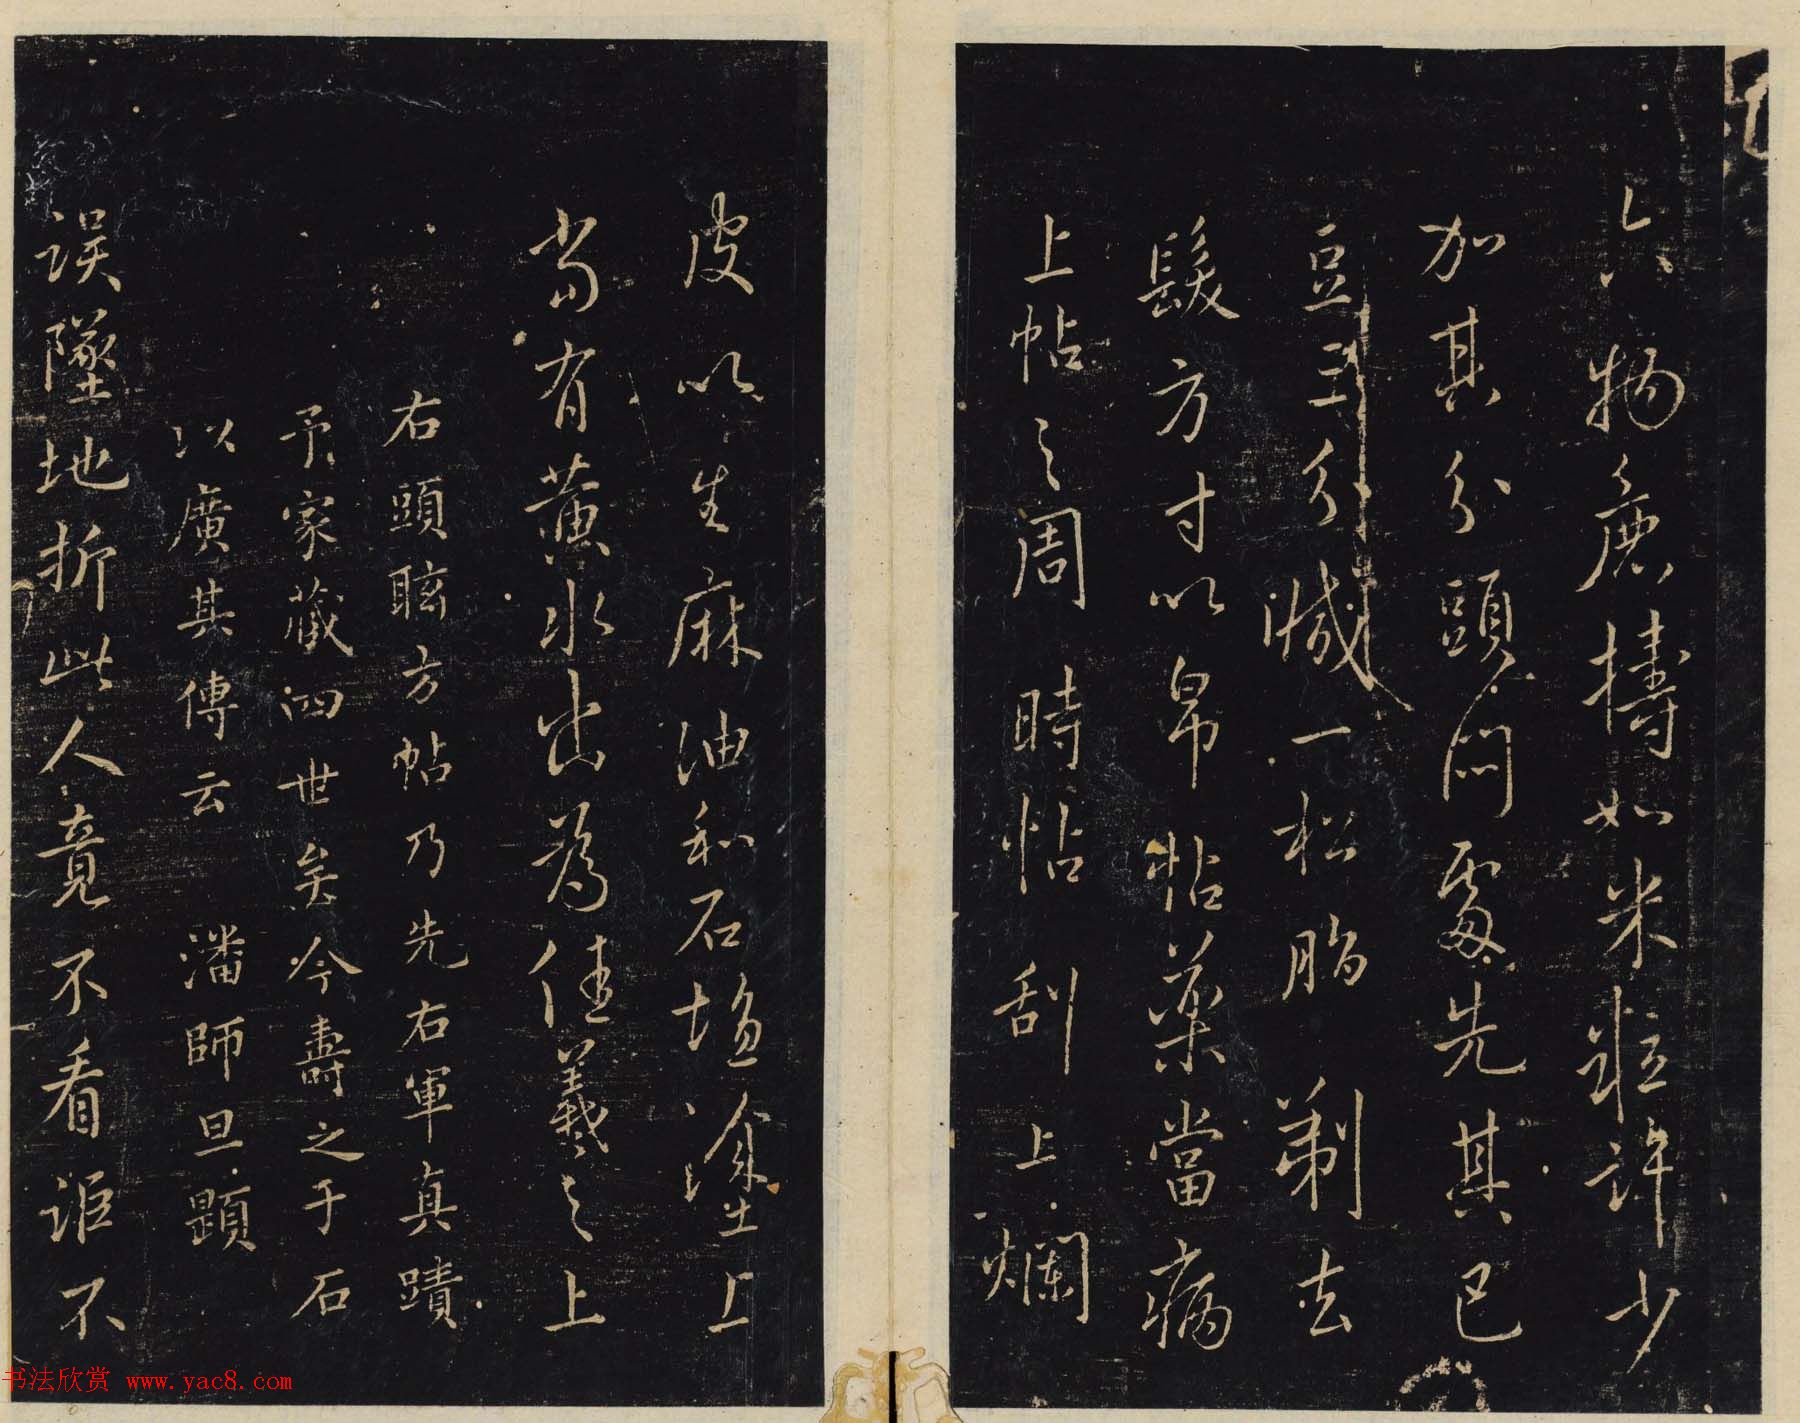 六物麁擣如米粒許少
加其分頭悶處先其已
豆三分減一松脂剃去
髮方寸以帛帖藥當病
上帖之周時帖刮上爛
皮以生麻油和石塩塗上
當有黃水出為佳羲之上
右頭眩方帖乃先右軍真蹟
予家藏四世矣今壽之于石
以廣其傳云 潘師旦題
誤墜地折此人竟不看詎不
书法欣赏 www.yac8.com